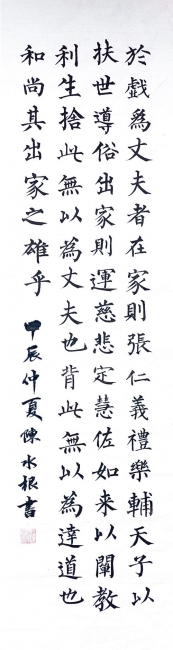 於戲為丈夫者在家則張仁義禮樂輔天子以
扶世導俗出家則運慈悲定慧佐如来以闡教
利生捨此無以為丈夫也背此無以為達道也
和尚其出家之雄乎
甲辰仲夏陳水根書